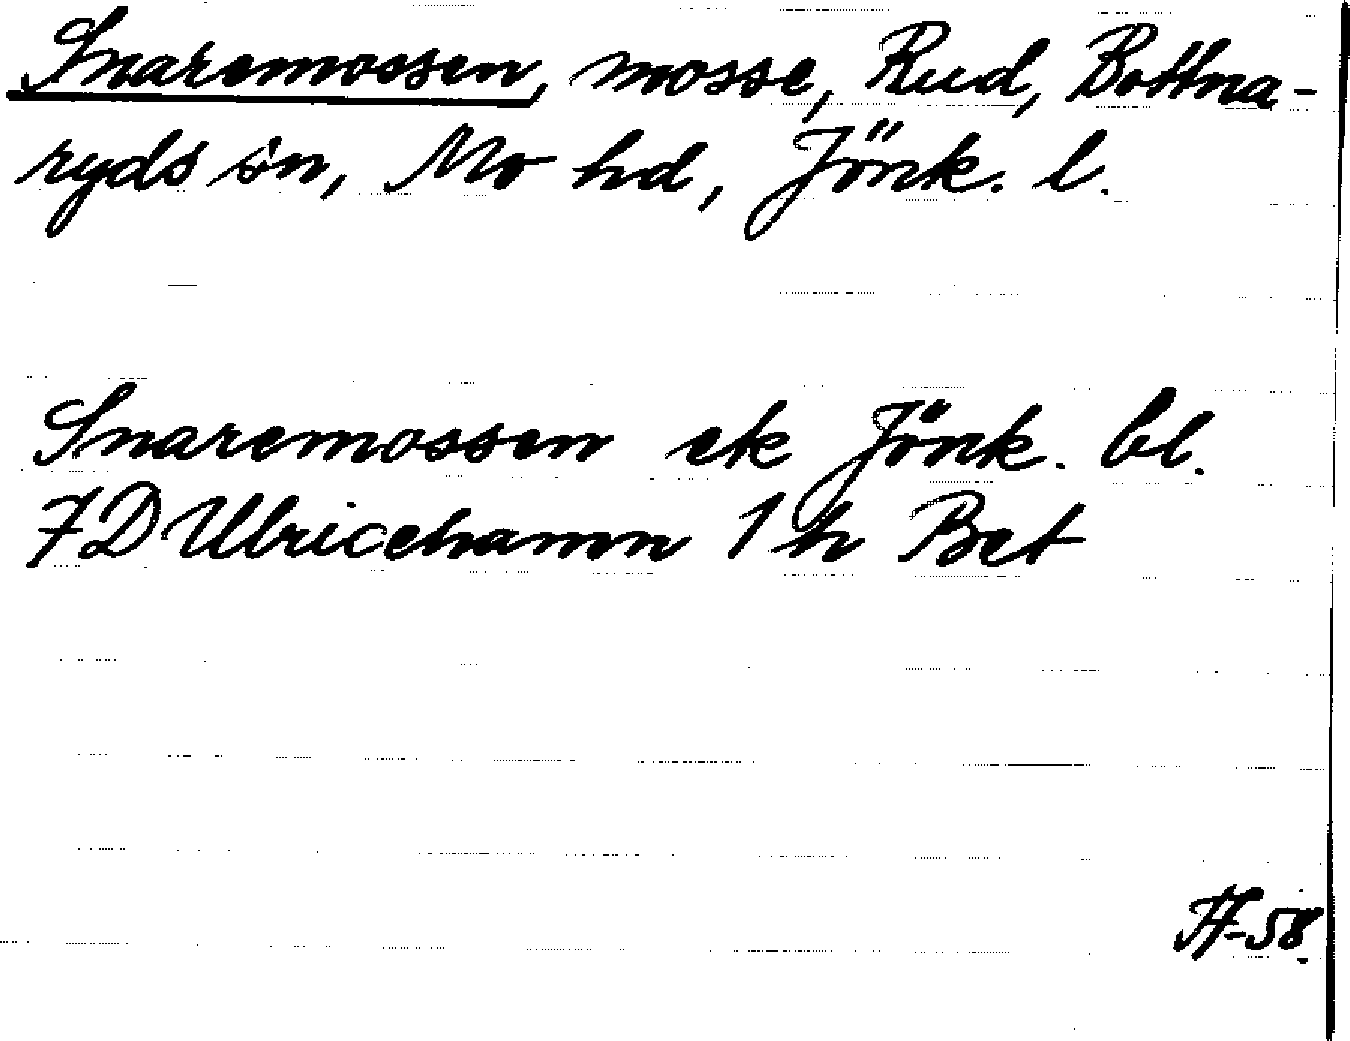 Snaremossen, mosse, Rud, Bottna-
ryds sn, Mo hd, Jönk. l.
Snaremossen ek Jönk. bl.
7D Ulricehamn 1 h Bet
H-58.